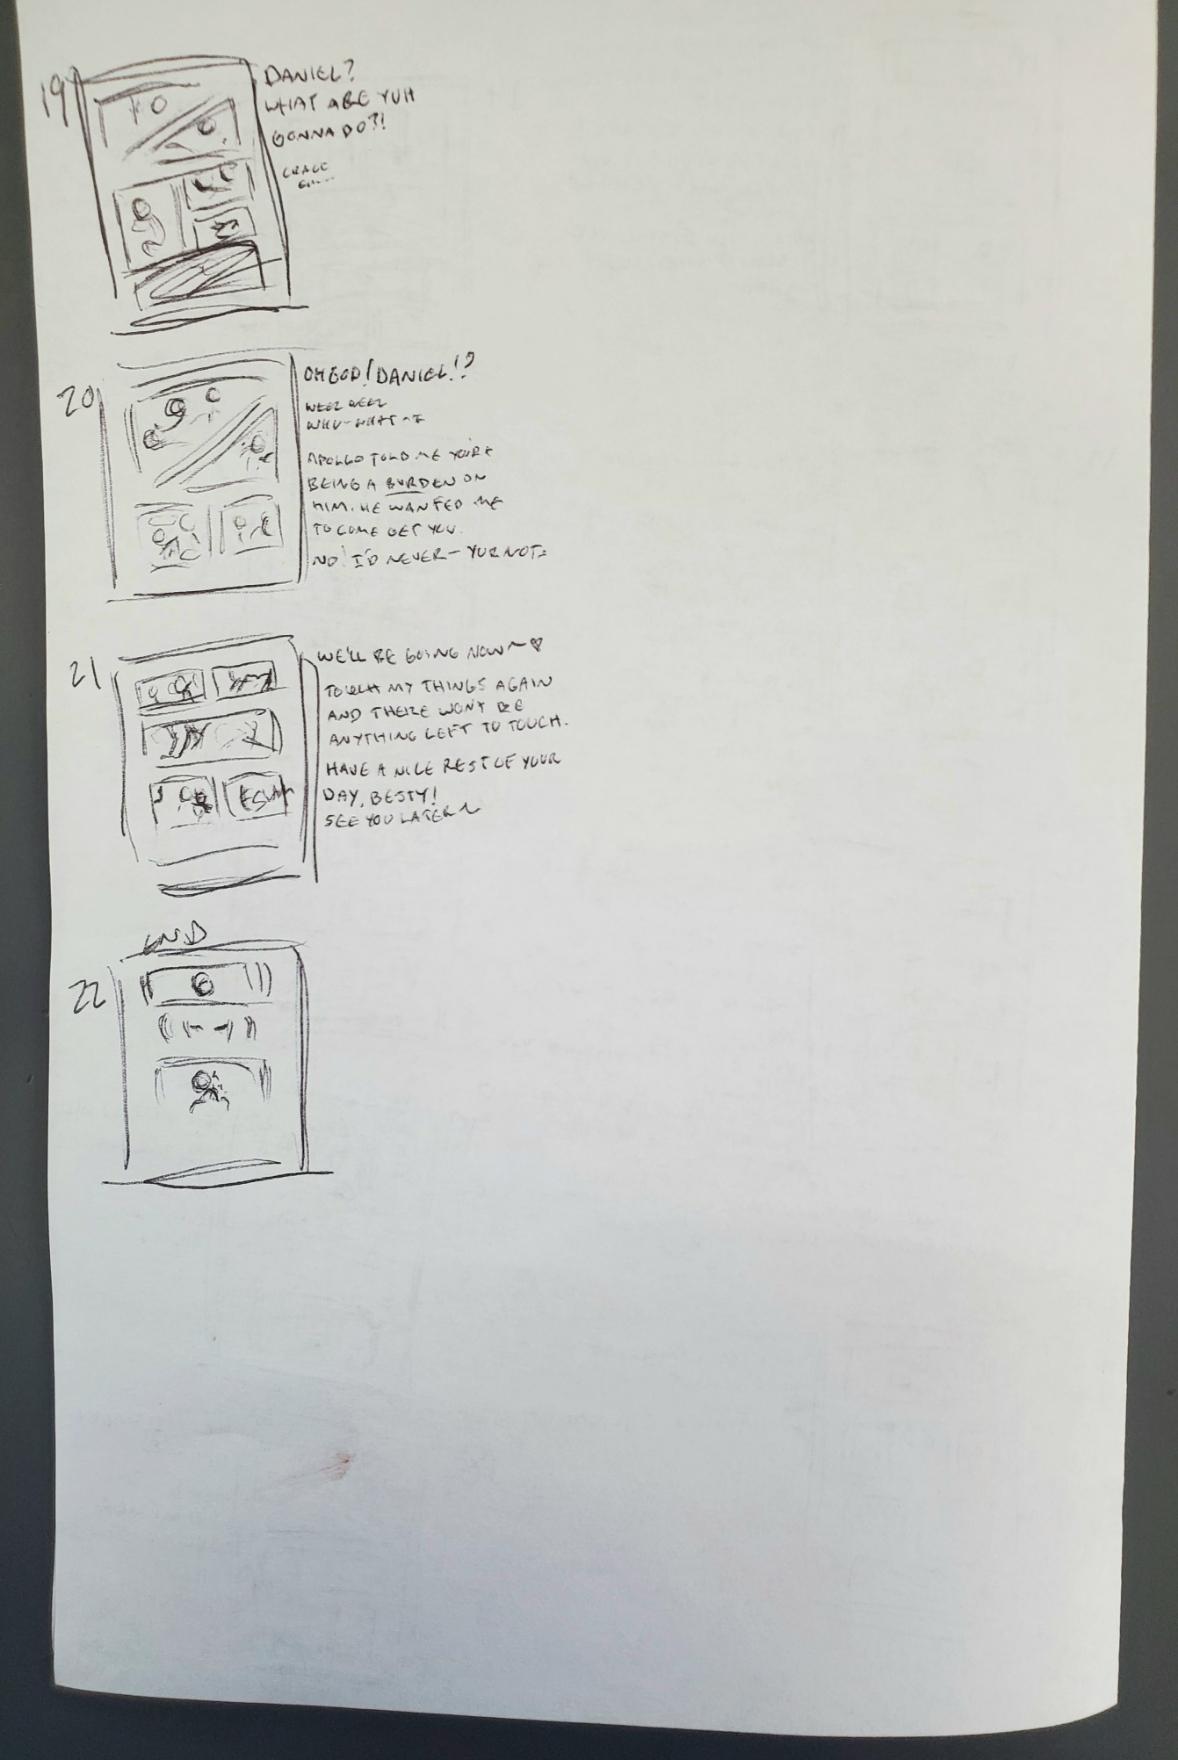 19
DANIEL?
WHAT ARE YUH
GONNA DO?!
20
OH GOD! DANIEL!?
WHU-WHAT-I
APOLLO TOLD ME YOU'RE
BEING A BURDEN ON
HIM. HE WANTED ME
TO COME GET YOU.
NO! I'D NEVER - YUR NOT-
21
WE'LL BE GOING NOW~♡
TOUCH MY THINGS AGAIN
AND THERE WON'T BE
ANYTHING LEFT TO TOUCH.
HAVE A NICE REST OF YOUR
DAY, BESTY!
SEE YOU LATER~
END
22